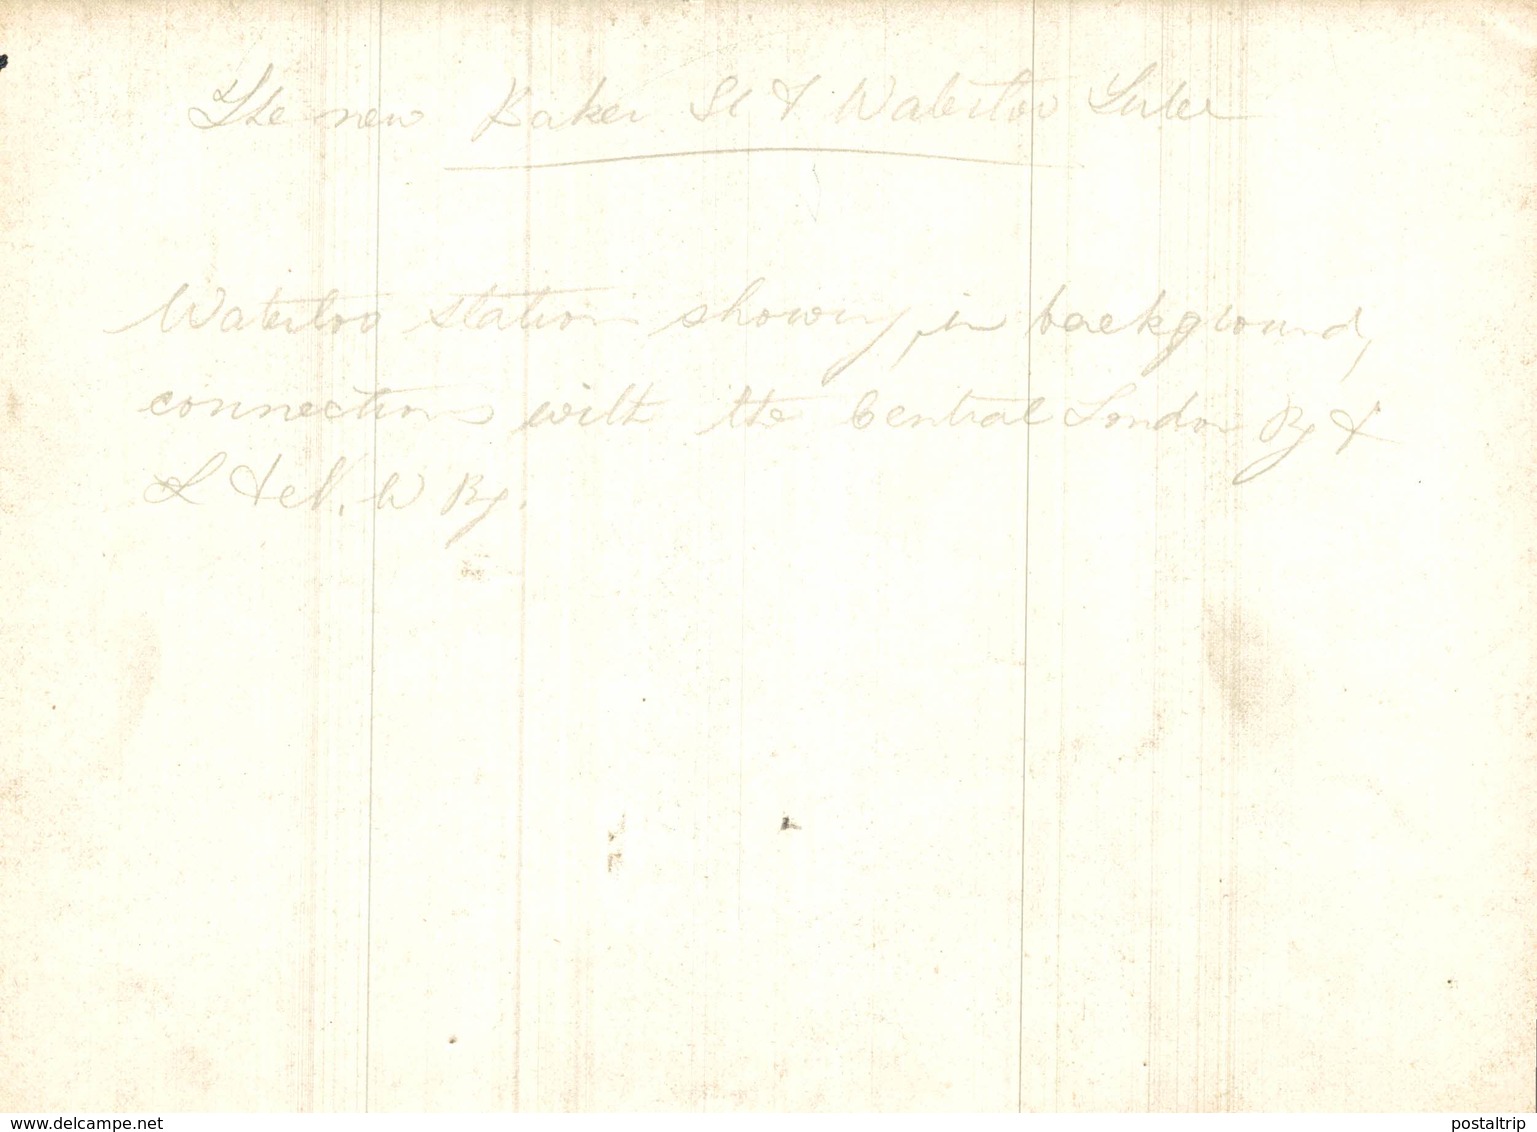 The new Baker St & Waterloo Tube
Waterloo station showing, in background,
connections with the Central London Ry &
L & N. W Ry.
www.delcampe.net
postaltrip